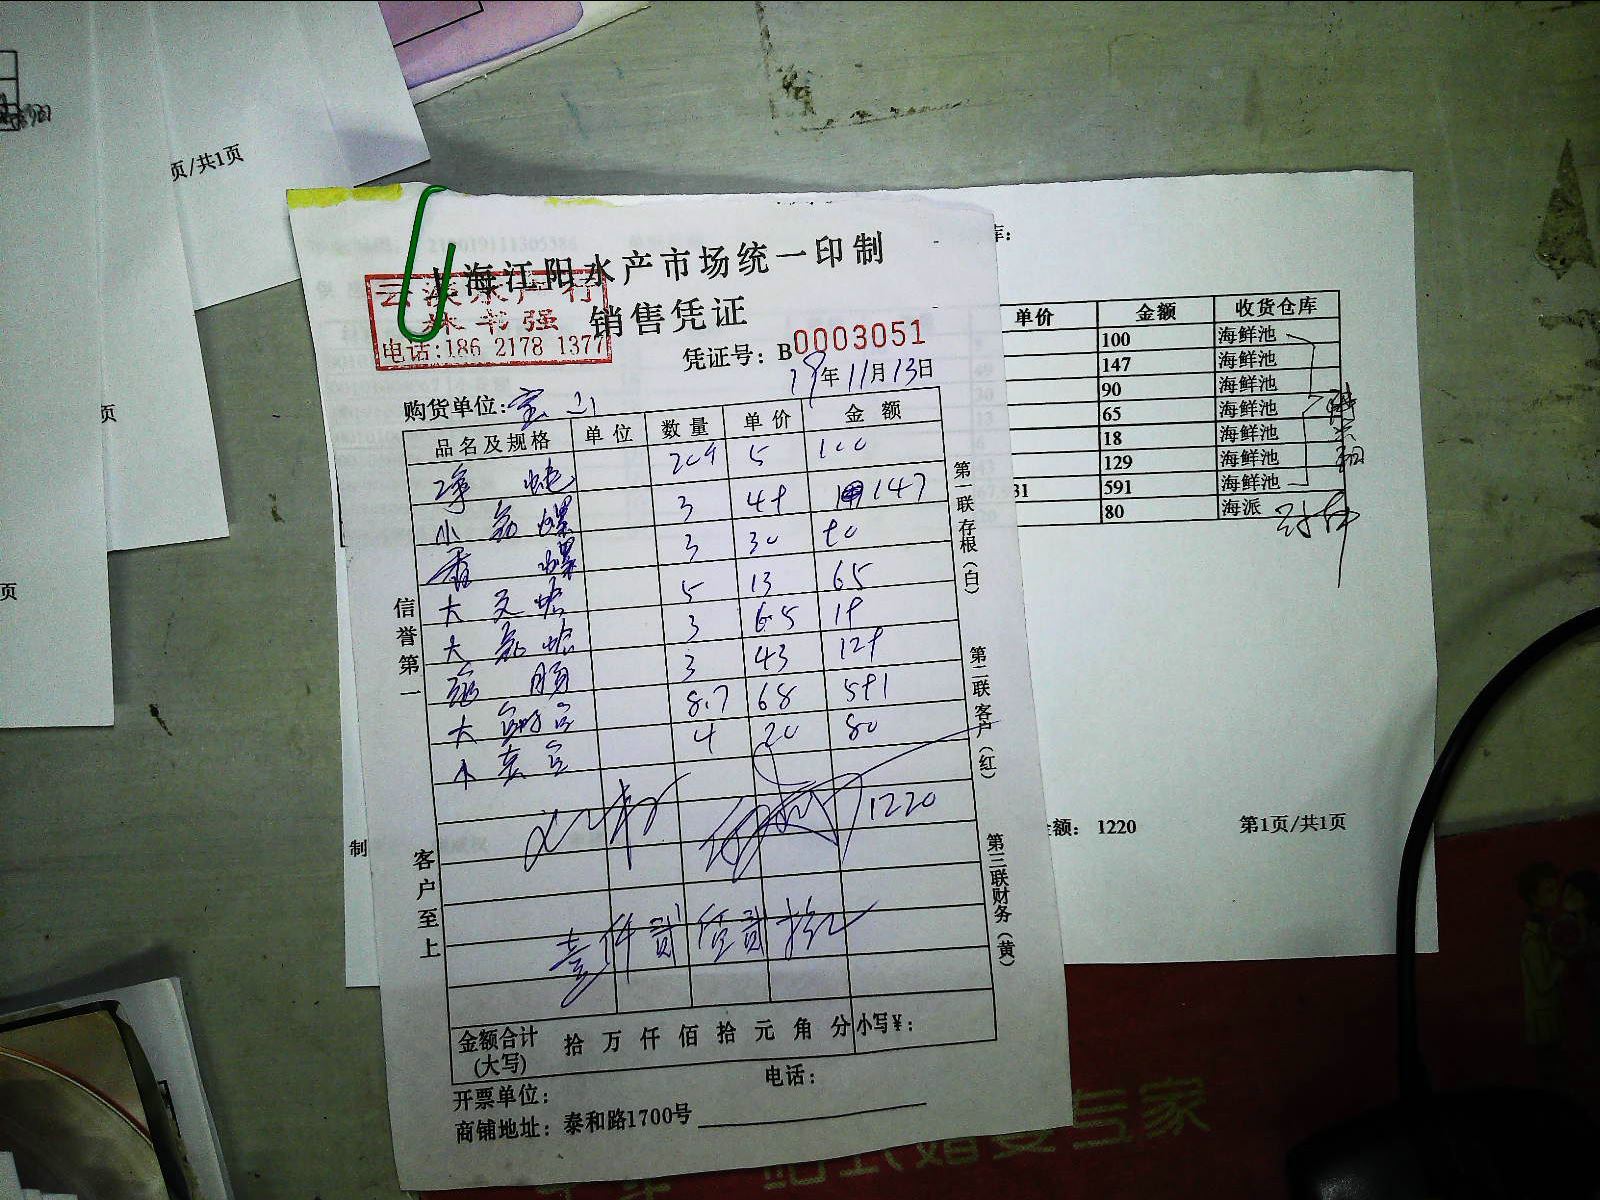 页/共1页
页
页
上海江阳水产市场统一印制
销售凭证
林书强
电话:186 2178 1377
凭证号: B0003051
19年11月13日
购货单位:宝山
品名及规格 单位 数量 单价 金额
净 蛏 20斤 5 100
小 鲍螺 3 49 147
香 螺 3 30 90
大 文蛤 5 13 65
大 花蛤 3 6.5 19
3 43 129
大 8.7 68 591
小 4 20 80
1220
壹仟贰佰贰拾元
金额合计
(大写)
拾 万 仟 佰 拾 元 角 分 小写¥:
开票单位:
电话:
商铺地址: 泰和路1700号
信誉第一
客户至上
第一联存根(白)
第二联客户(红)
第三联财务(黄)
库:
单价 金额 收货仓库
100 海鲜池
147 海鲜池
90 海鲜池
65 海鲜池
18 海鲜池
129 海鲜池
591 海鲜池
80 海派
额: 1220
第1页/共1页
制